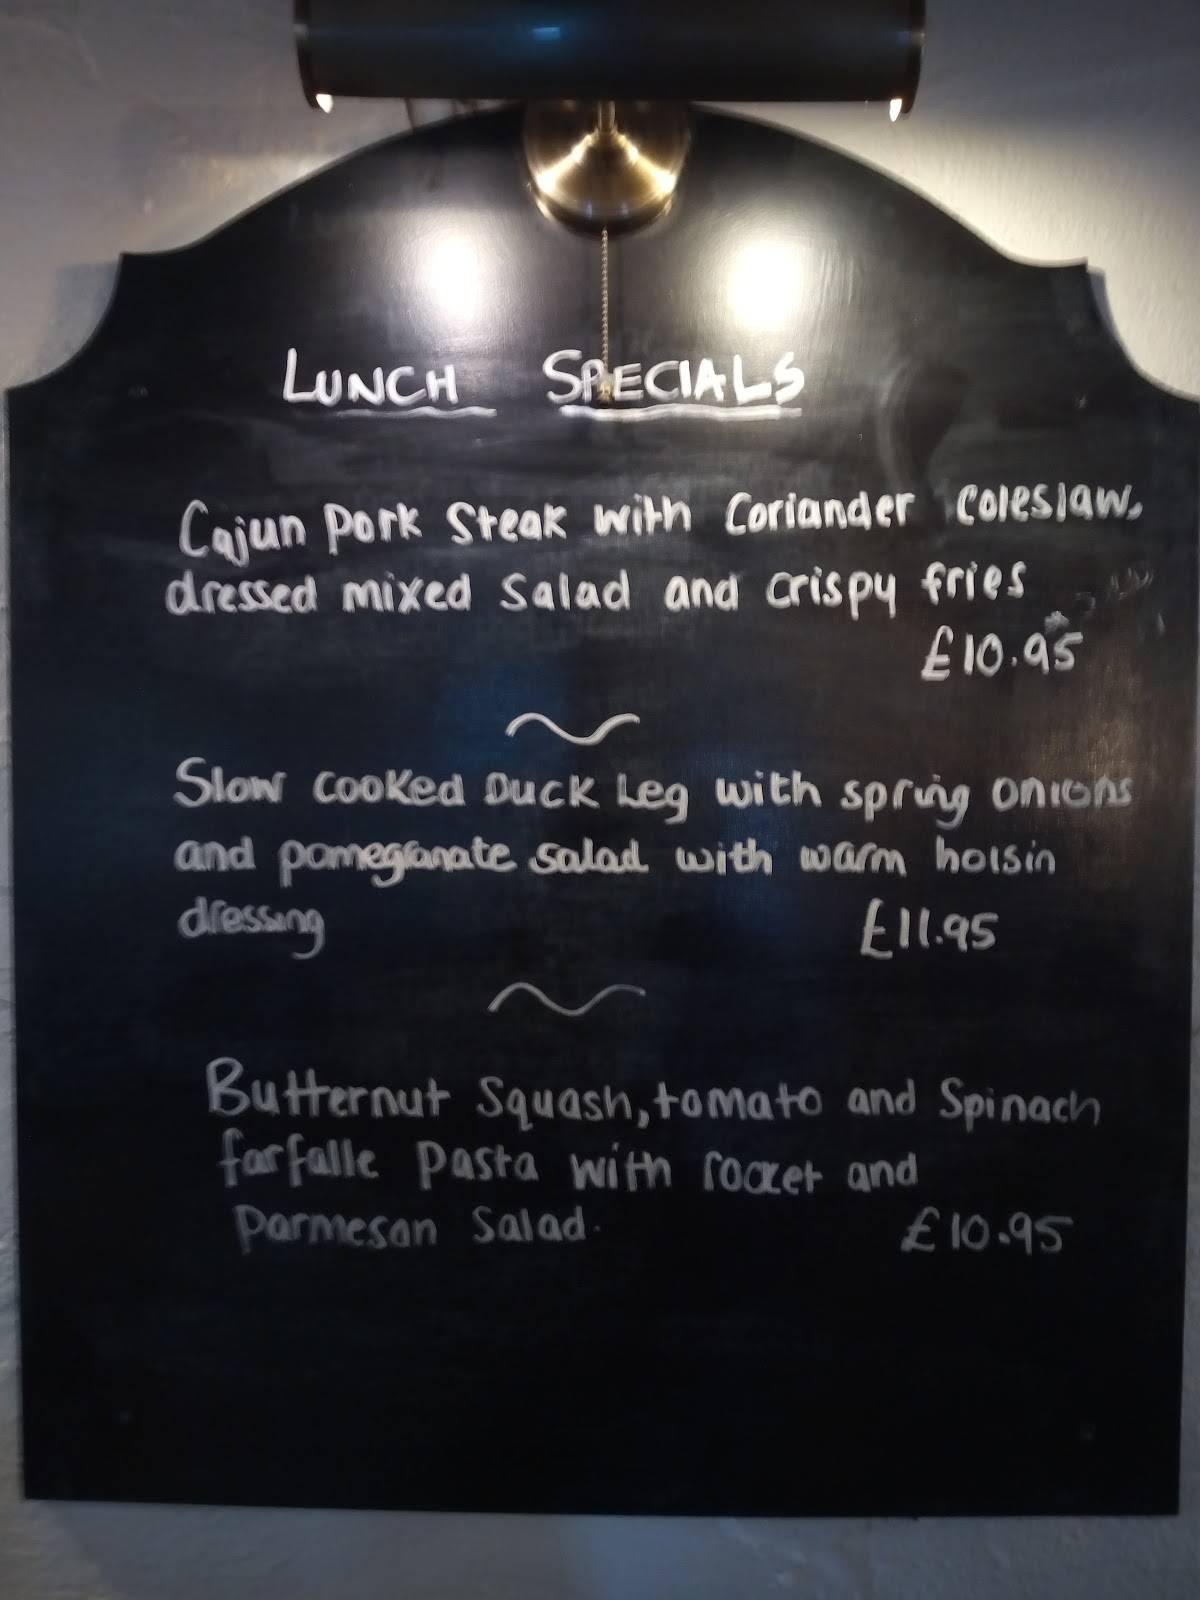 LUNCH SPECIALS
Cajun Pork Steak with Coriander Coleslaw,
dressed mixed Salad and crispy fries
£10.95
Slow cooked Duck Leg with spring onions
and pomegranate salad with warm hoisin
dressing £11.95
Butternut Squash, tomato and Spinach
farfalle Pasta with rocket and
Parmesan Salad. £10.95